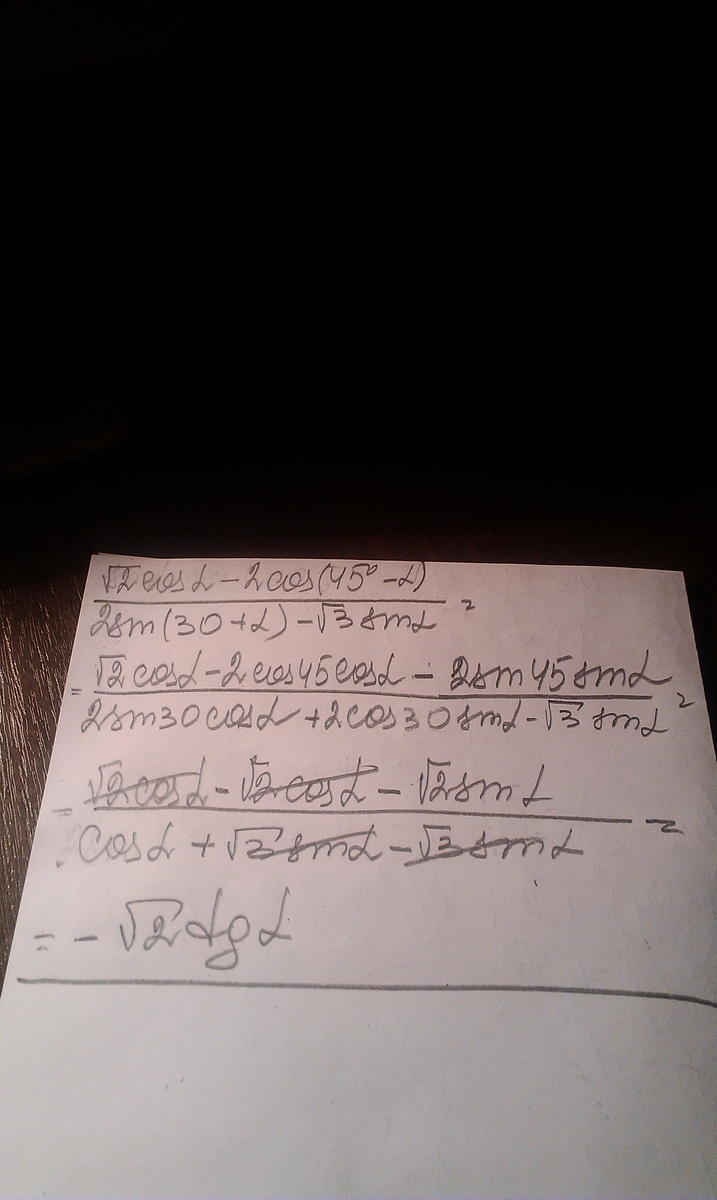 √2 cosα - 2cos(45° - α)
2sin(30 + α) - √3 sinα =
= √2 cosα - 2cos45cosα - 2sin45sinα
2sin30cosα + 2cos30sinα - √3 sinα =
= √2cosα - √2cosα - √2sinα
cosα + √3sinα - √3sinα =
= - √2 tgα